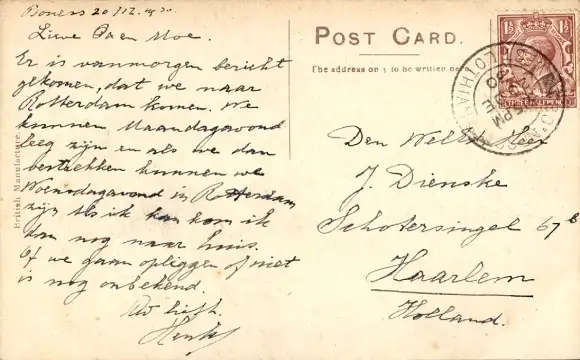 Boness 20/12
Lieve Pa en Moe.
Er is vanmorgen bericht
gekomen, dat we naar
Rotterdam komen. We
kunnen Maandagavond
leeg zijn en als we dan
vertrekken kunnen we
Woensdagavond in Rotterdam
zijn. Als ik kan kom ik
dan nog naar huis.
Of we gaan opliggen of niet
is nog onbekend.
Henk
British Manufacture
POST CARD.
The address on to be written
1½ 1½
THREE HALFPENCE
LOTHIAN
PM
20 DE
Den WelEd. Heer
J. Dienske
Schotersingel 67
Haarlem
Holland.